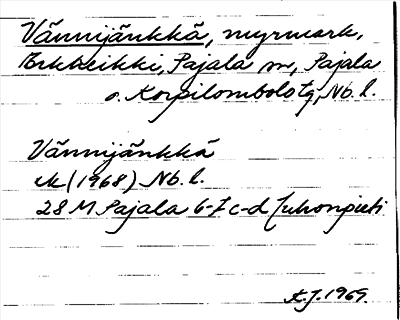 Vännijänkkä, myrmark,
Erkheikki, Pajala sn, Pajala
o. Korpilombolo tg, Nb. l.
Vännijänkkä
ek (1968) Nb. l.
28 M Pajala 6-7 c-d Juhonpieti
K.J. 1969.